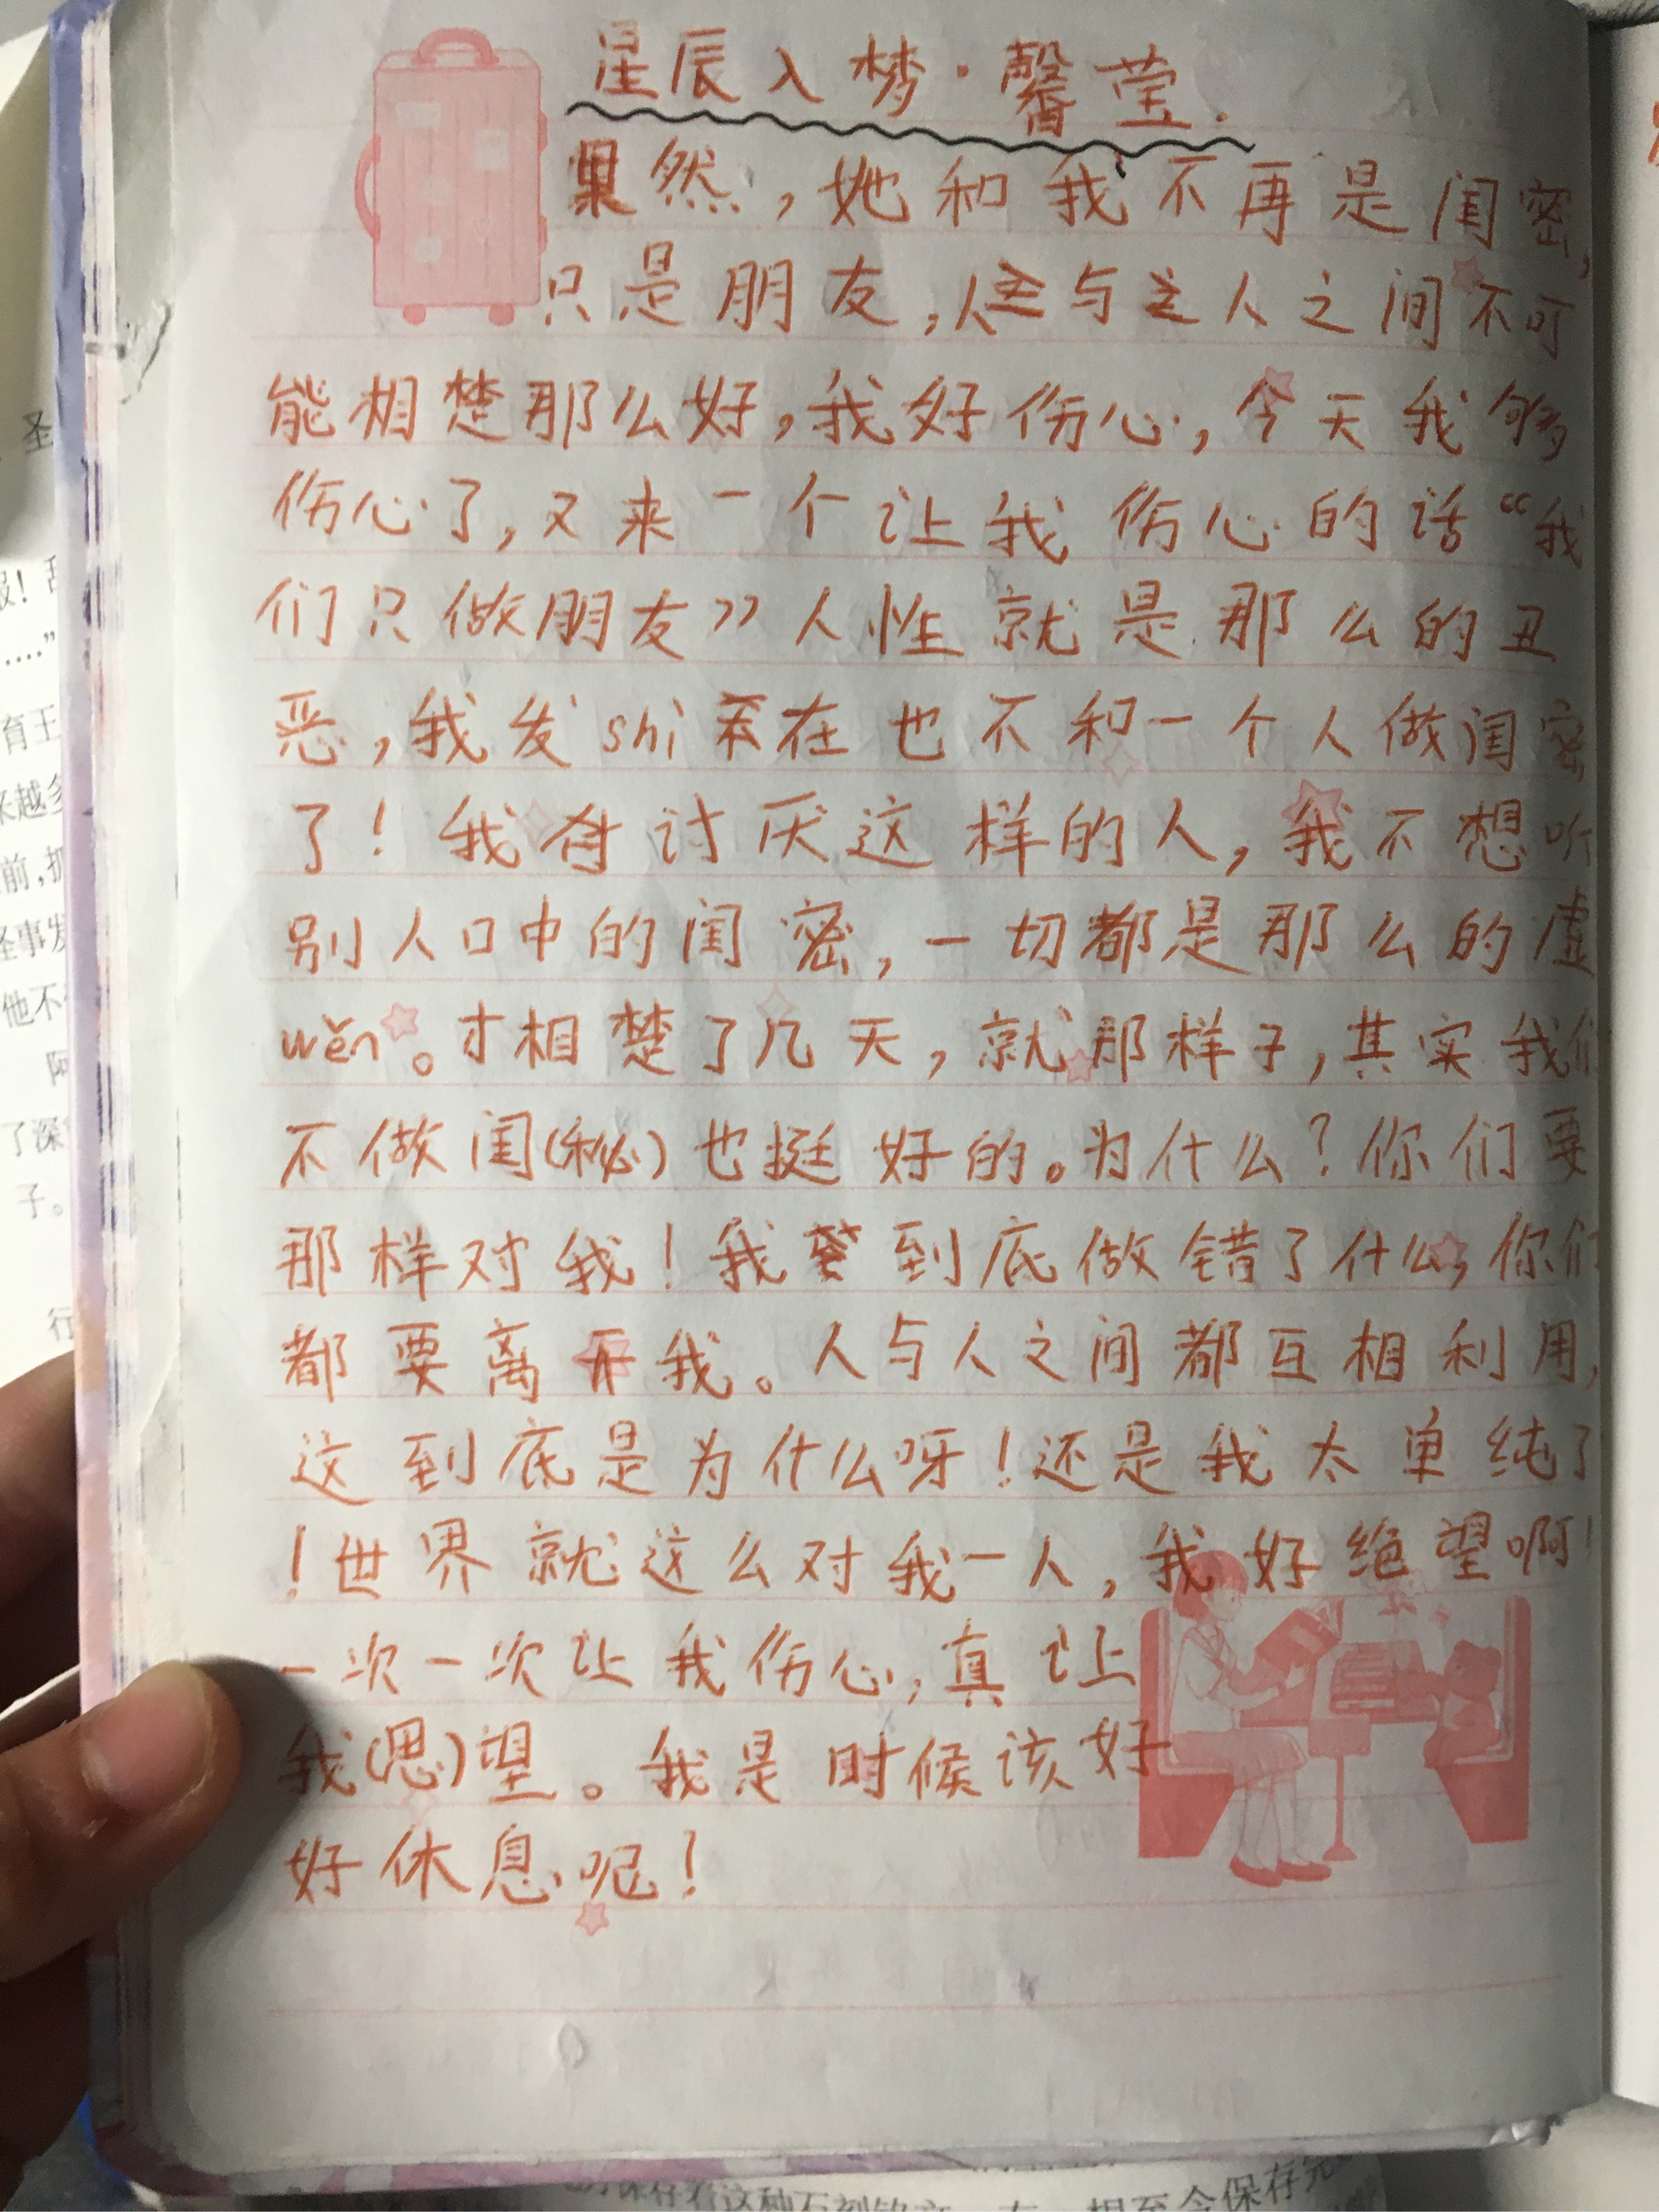 星辰入梦·馨莹.
果然,她和我不再是闺密,
只是朋友,人与人之间不可
能相楚那么好,我好伤心,今天我够
伤心了,又来一个让我伤心的话“我
们只做朋友”人性就是那么的丑
恶,我发shi在也不和一个人做闺密
了!我讨厌这样的人,我不想听
别人口中的闺密,一切都是那么的虚
wěn。才相楚了几天,就那样子,其实我们
不做闺(秘)也挺好的。为什么?你们要
那样对我!我到底做错了什么,你们
都要离开我。人与人之间都互相利用,
这到底是为什么呀!还是我太单纯了
!世界就这么对我一人,我好绝望啊!
一次一次让我伤心,真让
我(思)望。我是时候该好
好休息呢!
圣
育王
来越多
前,把
怪事发
他不
阿
了深
子。
行